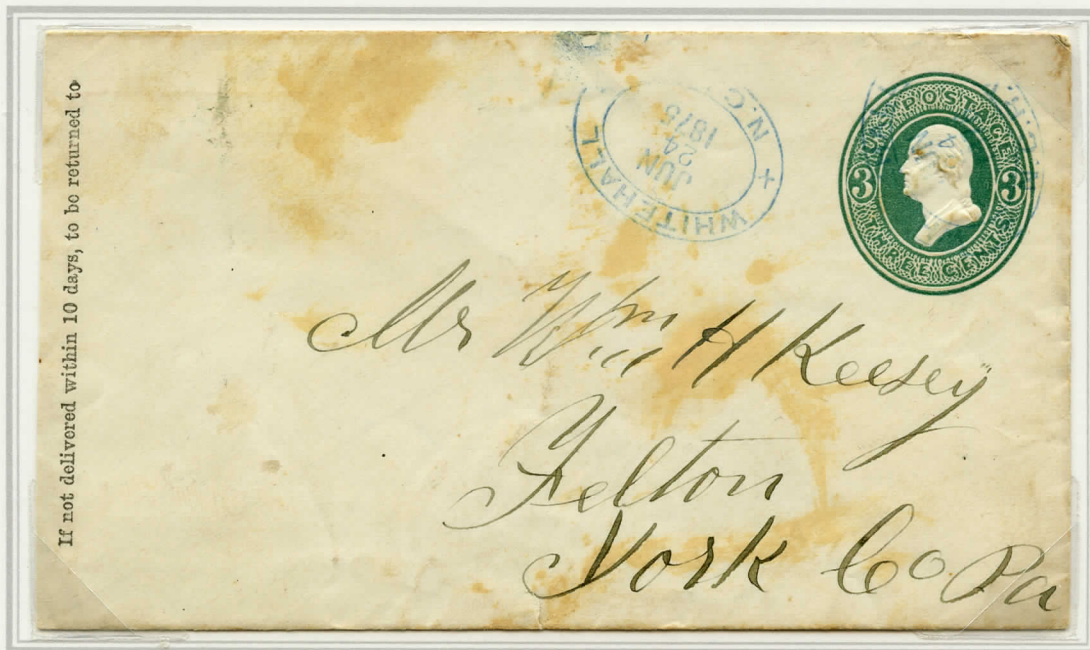 If not delivered within 10 days, to be returned to
WHITEHALL N.C. +
JUN
24
1878
U.S. POSTAGE
3 3
THREE CENTS
Mr Wm H Keesey
Felton
York Co Pa